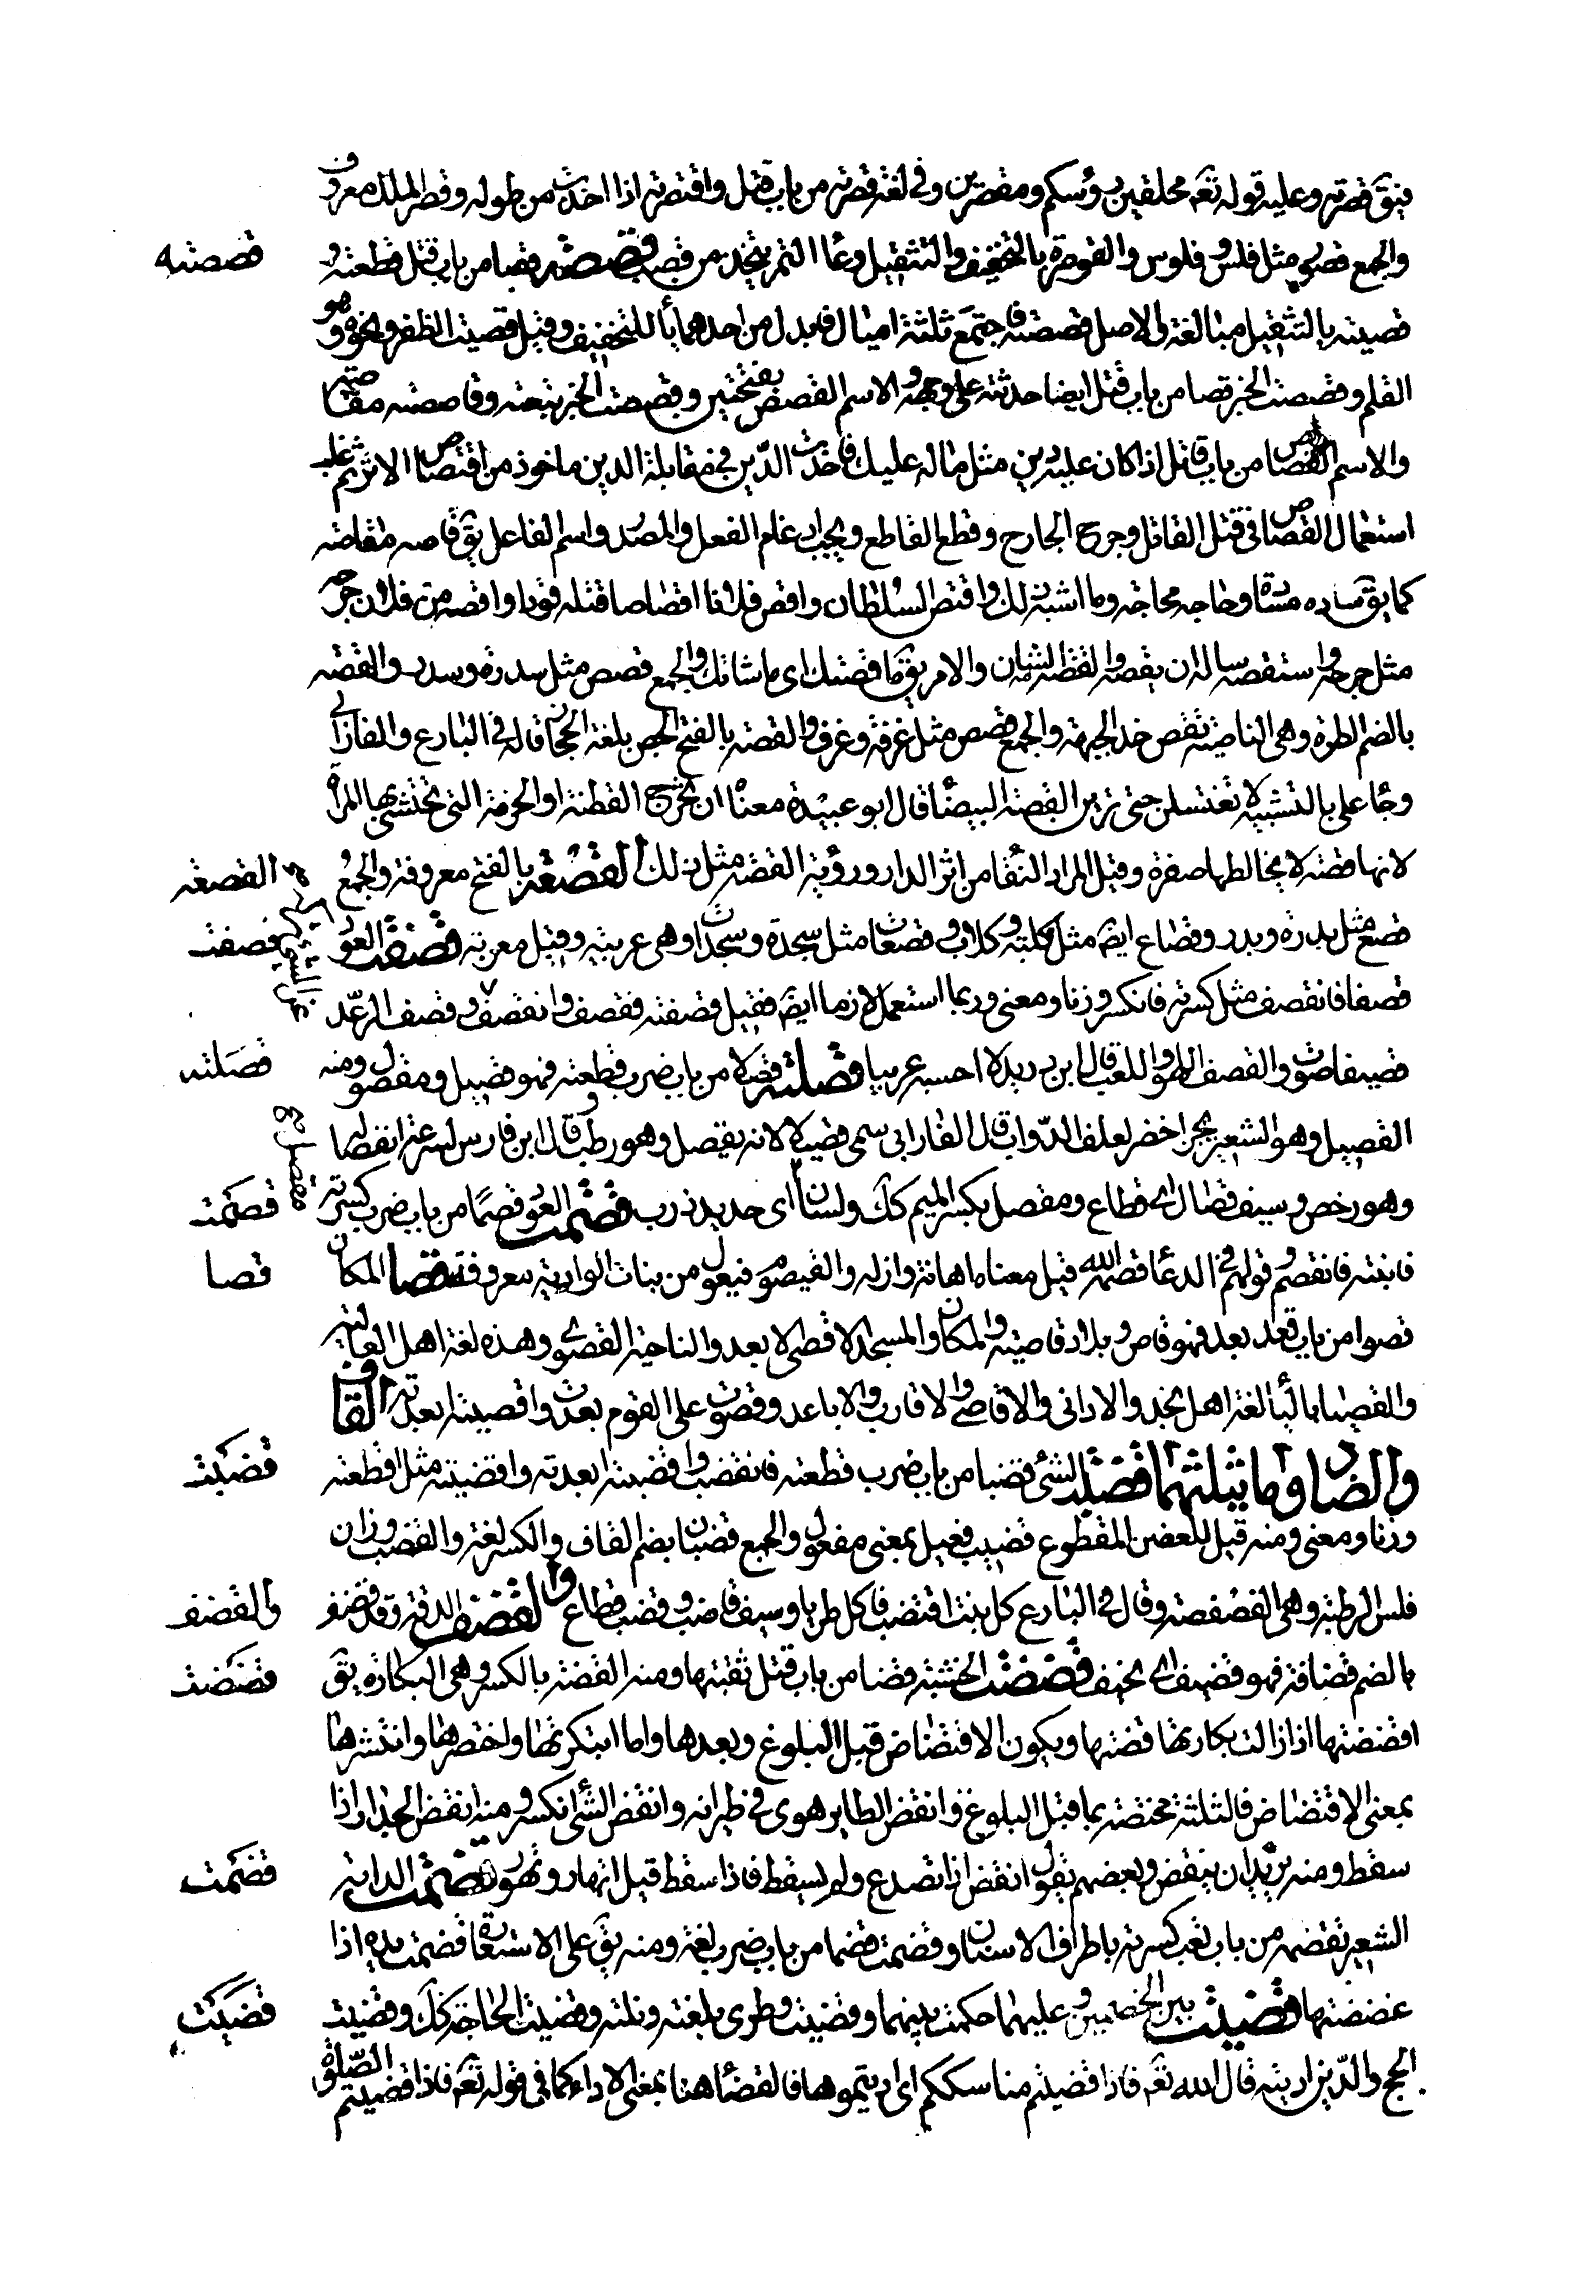 فيق قصرته وعليه قوله تعه محلقين رؤسكم ومقصرين وفي لغة قصرته من باب قتل واقتصرته اذا اخذت من طوله وقصر الملك معروف
والجمع قصور مثل فلس وفلوس والقوصرة بالتخفيف والتثقيل وعاء التمر يتخذ من قصب قصصته قصا من باب قتل قطعته و
قصصته
قصيته بالتثقيل مبالغة والاصل قصصته فاجتمع ثلثة امثال فابدل من احدهما ياء للتخفيف وقيل قصيت الظفر ونحوه وهو
القلم وقصصت الخبر قصا من باب قتل ايضا حدثته على وجهه والاسم القصص بفتحتين وقصصت الخبر تتبعته وقاصصته مقاصة
والاسم القصاص من باب قاتل اذا كان عليه دين مثل ماله عليك فاخذت الدين في مقابلة الدين ماخوذ من اقتصاص الاثر ثم غلب
استعمال القصاص في قتل القاتل وجرح الجارح وقطع القاطع ويجب ادغام الفعل والمصدر واسم الفاعل يق قاصه مقاصة
كما يق ساره مسارة وحاجه محاجة وما اشبه ذلك واقتص السلطان واقص فلانا اقصاصا قتله قودا واقصه من فلان جرحه
مثل جرحه واستقصه ساله ان يقصه والقصة الشان والامر يق ما قصتك اي ما شانك والجمع قصص مثل سدرة وسدر والقصة
بالضم الطرة وهي الناصية تقص حذاء الجبهة والجمع قصص مثل غرفة وغرف والقصة بالفتح الجص بلغة الحجاز قاله في البارع والفارابي
وجاء على بالتشبيه لا تغتسلن حتى ترين القصة البيضاء قال ابو عبيدة معناه ان تخرج القطنة او الخرقة التي تحتشي بها المراة
لانها قصة لا يخالطها صفرة وقيل المراد النقاء من اثر الدار ورؤية القصة مثل ذلك القصعة بالفتح معروفة والجمع
القصعة
قصع مثل بدرة وبدر وقصاع ايضه مثل كلبة وكلاب وقصعات مثل سجدة وسجدات وهي عربية وقيل معربة قصفت العود
قصفت
قصفا فانقصف مثل كسرته فانكسر وزنا ومعنى وربما استعمل لازما ايضه فقيل قصفته فقصف وانقصف وقصف الرعد
قصيفا صوت والقصف اللهو واللعب قال ابن دريد لا احسبه عربيا قصلته قصلا من باب ضرب قطعته فهو قصيل ومقصول ومنه
قصلته
القصيل وهو الشعير يجز اخضر لعلف الدواب قال الفارابي سمى قصيلا لانه يقصل وهو رطب وقال ابن فارس لسرعة انقصاله
وهو رخص وسيف قصال اي قطاع ومقصل بكسر الميم كك ولسان اي حديد ذرب قصمت العود قصما من باب ضرب كسرته
قصمت
فابنته فانقصم وقولهم في الدعاء قصمه الله قيل معناه اهانه واذله والقيصوم فيعول من بنات البادية معروفة قصا المكان
قصا
قصوا من باب قعد بعد فهو قاص وبلاد قاصية والمكان والمسجد الاقصى الابعد والناحية القصوى وهذه لغة اهل العالية
والقصيا بالياء لغة اهل نجد والاداني والاقاصي والاقارب والاباعد وقصوت على القوم بعدت واقصيته ابعدته القاف
والضاد وما يثلثهما قضبت الشئ قضبا من باب ضرب قطعته فانقضب واقتضبته ابعدته واقتضبته مثل اقتطعته
قضبت
وزنا ومعنى ومنه قيل للغصن المقطوع قضيب فعيل بمعنى مفعول والجمع قضبان بضم القاف والكسر لغة والقضب وزان
فلس الرطبة وهي الفصفصة وقال في البارع كل نبت اقتضب فاكل طريا وسيف قاضب وقضب قطاع والقضف الدقة وقد قضف
والقضف
بالضم قضافة فهو قضيف اي نحيف قضضت الخشبة قضا من باب قتل ثقبتها ومنه القضة بالكسر وهي البكارة يق
قضضت
اقتضضتها اذا ازالت بكارتها قضتها ويكون الاقتضاض قبل البلوغ وبعدها واما ابتكرتها واختصرها وانتشرها
بمعنى الاقتضاض فالثلثة مختصة بما قبل البلوغ وانقض الطاير هوى في طيرانه وانقض الشئ انكسر ومنه انقض الجدار اذا
سقط ومنه يريد ان ينقض وبعضهم يقول انقض اذا تصدع ولم يسقط فاذا سقط قيل انهار وتهور قضمت الدابة
قضمت
الشعير تقضمه من باب تعب كسرته باطراف الاسنان وقضمت قضما من باب ضرب لغة ومنه يق على الاستعارة قضمت يده اذا
عضضتها قضيت بين الخصمين وعليهما حكمت بينهما وقضيت وطرى بلغته ونلته وقضيت الحاجة كك وقضيت
قضيت
الحج والدين اديته قال الله تعه فاذا قضيتم مناسككم اي اديتموها فالقضاء هنا بمعنى الاداء كما في قوله تعه فاذا قضيتم الصلوة